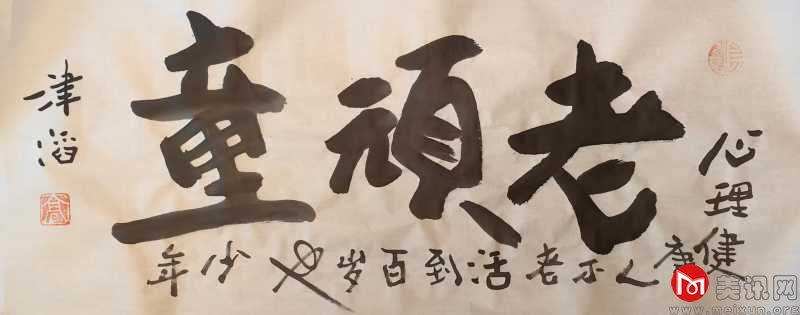 老頑童
心理健
康人不老活到百岁也少年
津滔
美讯网
www.meixun.org